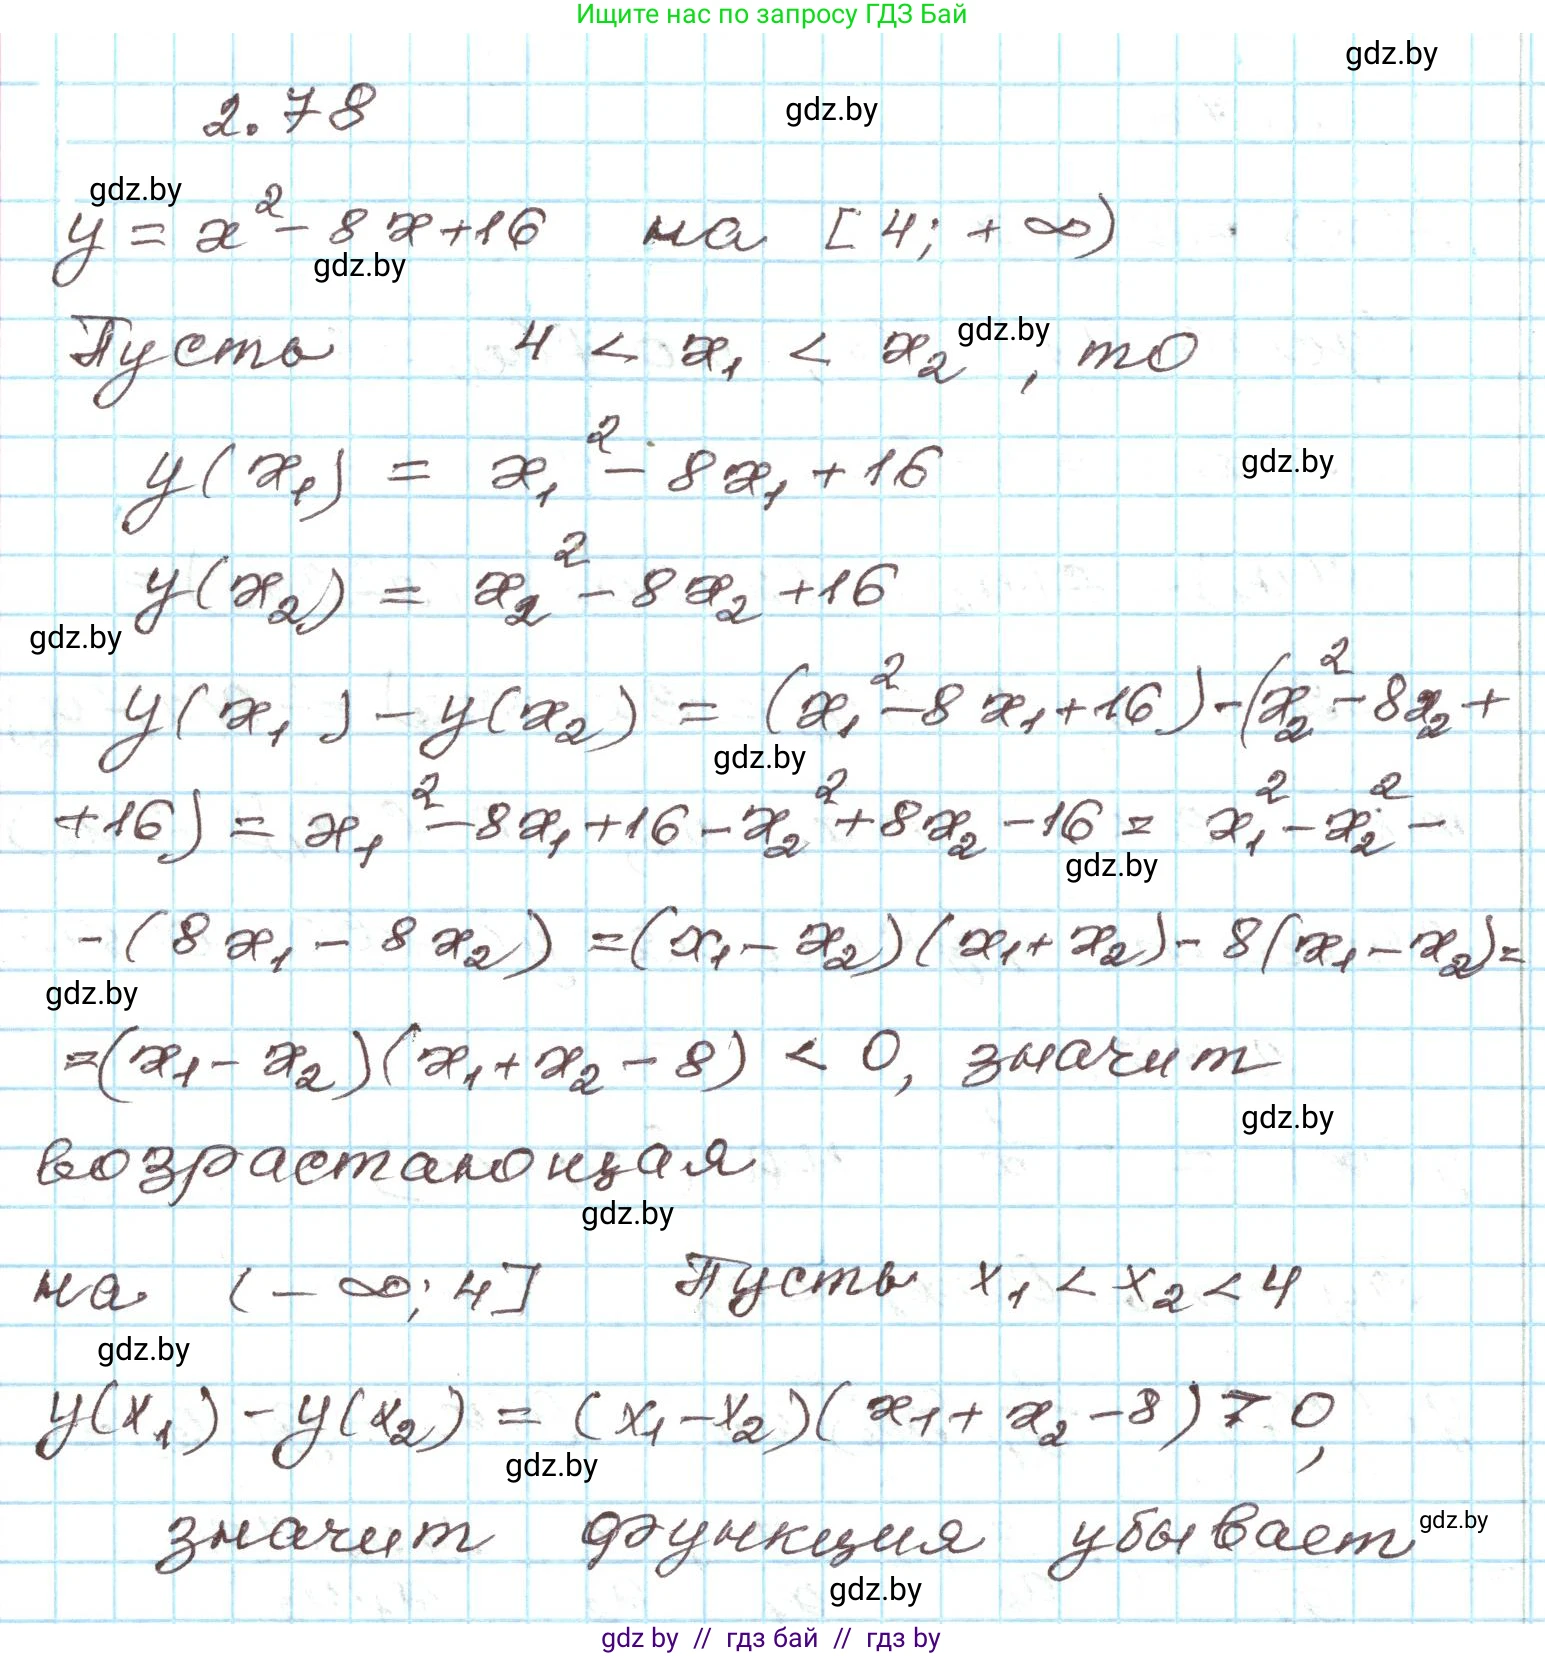 Ищите нас по запросу ГДЗ Бай
gdz.by
2.78
gdz.by
gdz.by
y = x² - 8x + 16 на [4; +∞)
gdz.by
Пусть 4 < x₁ < x₂, то
gdz.by
y(x₁) = x₁² - 8x₁ + 16
gdz.by
y(x₂) = x₂² - 8x₂ + 16
gdz.by
y(x₁) - y(x₂) = (x₁² - 8x₁ + 16) - (x₂² - 8x₂ +
gdz.by
+16) = x₁² - 8x₁ + 16 - x₂² + 8x₂ - 16 = x₁² - x₂² -
gdz.by
- (8x₁ - 8x₂) = (x₁ - x₂)(x₁ + x₂) - 8(x₁ - x₂) =
gdz.by
= (x₁ - x₂)(x₁ + x₂ - 8) < 0, значит
gdz.by
возрастающая
gdz.by
на (-∞; 4] Пусть x₁ < x₂ < 4
gdz.by
y(x₁) - y(x₂) = (x₁ - x₂)(x₁ + x₂ - 8) > 0,
gdz.by
значит функция убывает
gdz.by
gdz.by
gdz by // гдз бай // гдз by